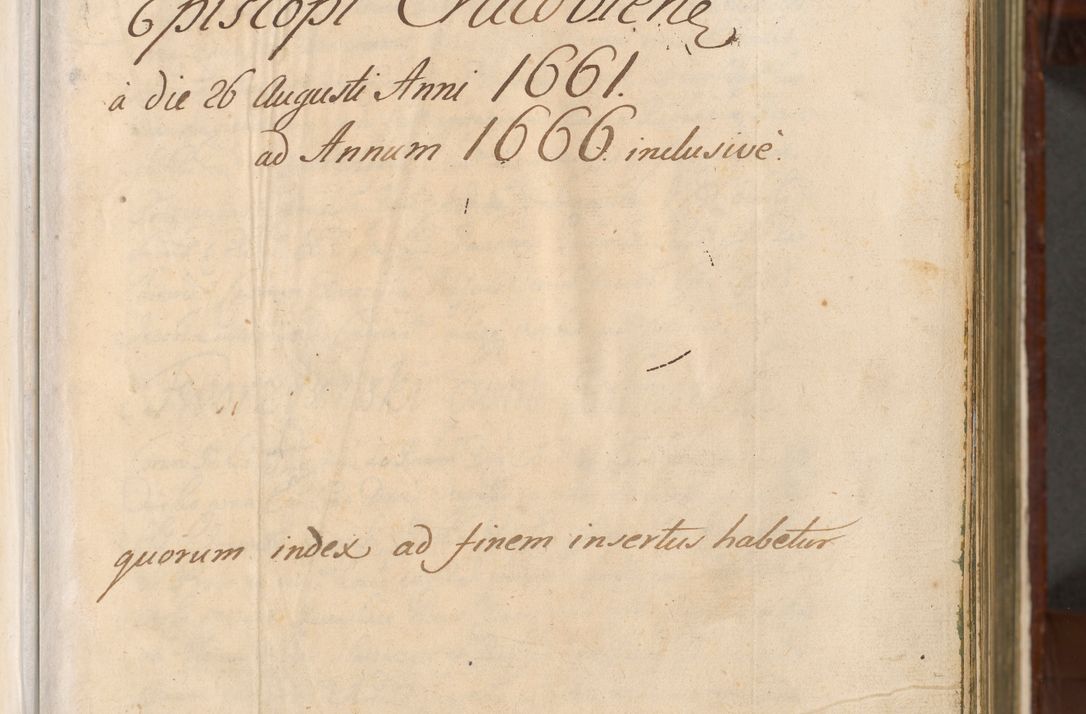 Episcopi Cracoviene
à die 26 Augusti Anni 1661.
ad Annum 1666. inclusivè.
quorum index ad finem insertus habetur